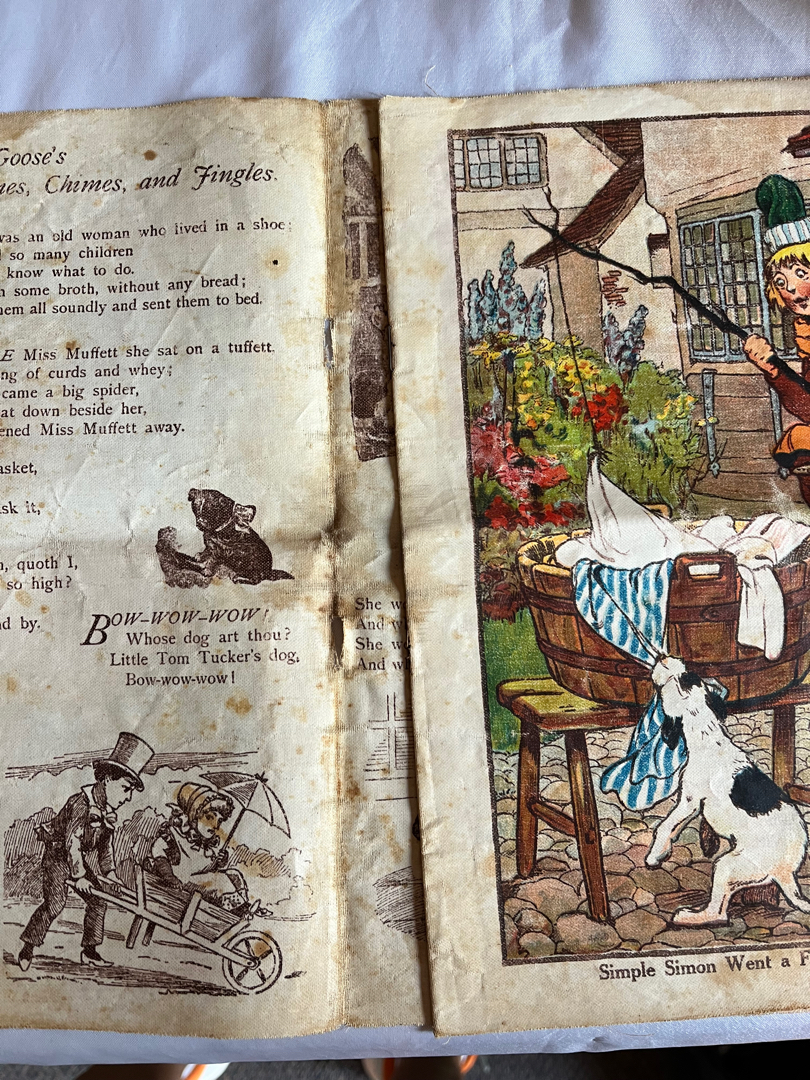 Goose's
Chimes, and Jingles.
was an old woman who lived in a shoe;
so many children
know what to do.
some broth, without any bread;
them all soundly and sent them to bed.
Miss Muffett she sat on a tuffett.
of curds and whey;
came a big spider,
at down beside her,
Miss Muffett away.
quoth I,
so high?
by.
Bow-wow-wow!
Whose dog art thou?
Little Tom Tucker's dog,
Bow-wow-wow!
She
And
She
And
Simple Simon Went a